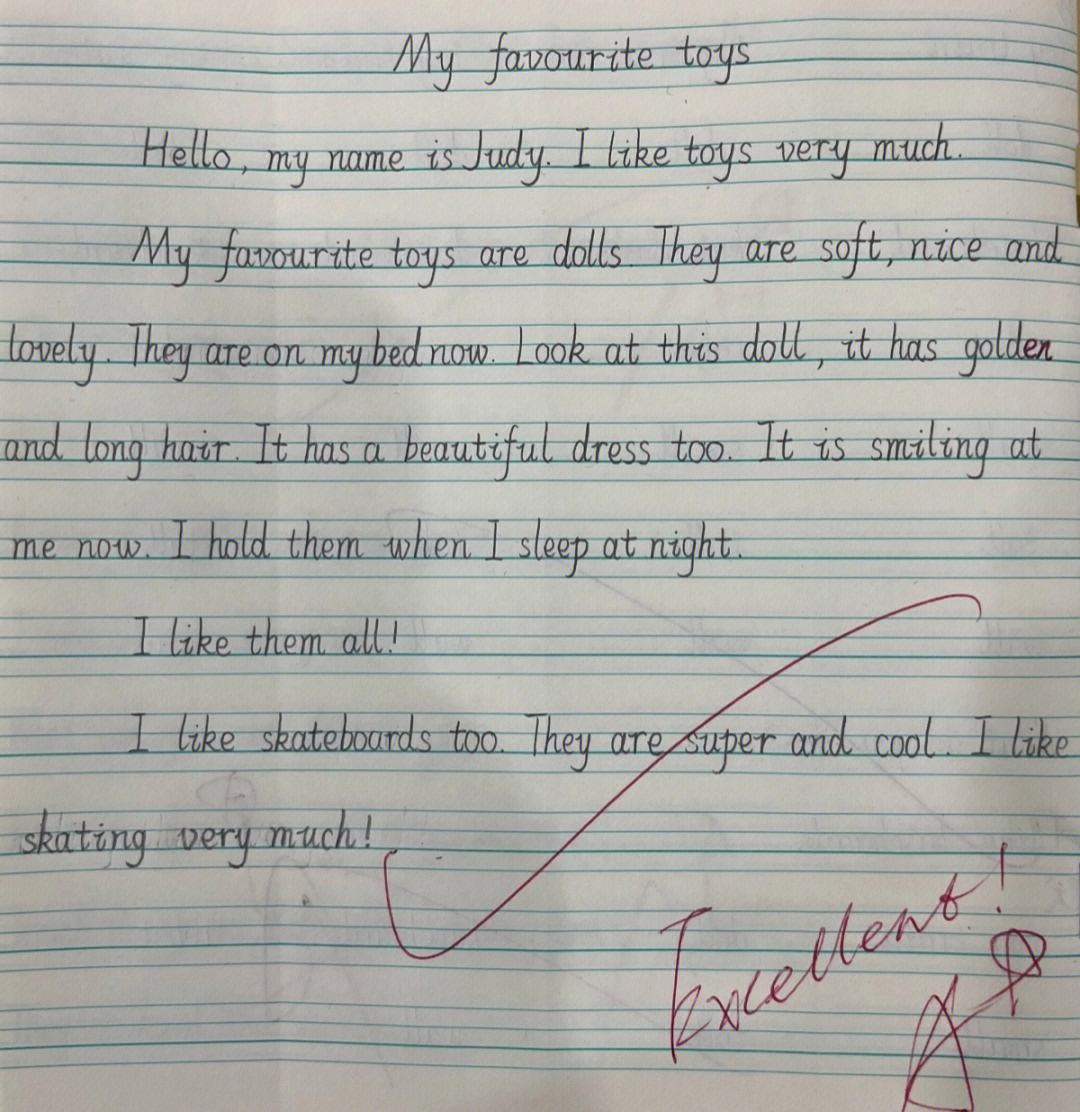 My favourite toys
Hello, my name is Judy. I like toys very much.
My favourite toys are dolls. They are soft, nice and
lovely. They are on my bed now. Look at this doll, it has golden
and long hair. It has a beautiful dress too. It is smiling at
me now. I hold them when I sleep at night.
I like them all!
I like skateboards too. They are super and cool. I like
skating very much!
Excellent!